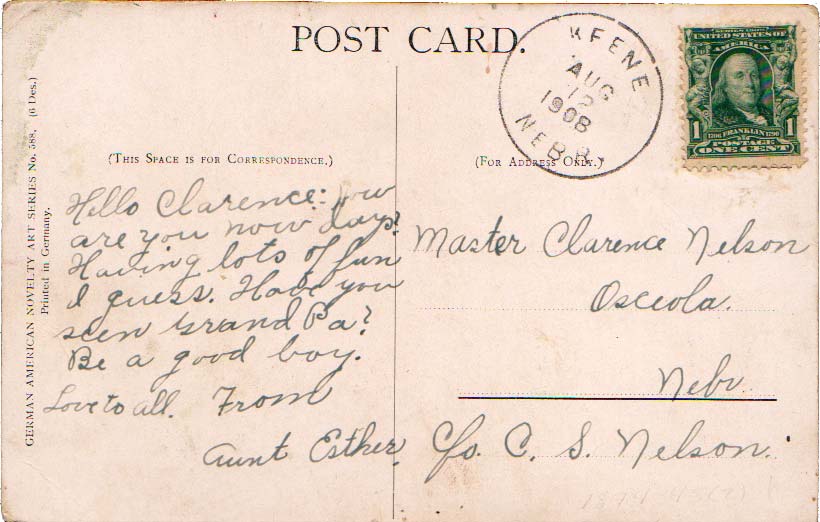 POST CARD.
KEENE
AUG
12
1908
NEBR.
SERIES 1902
UNITED STATES OF
AMERICA
1706 FRANKLIN 1790
1 POSTAGE 1
ONE CENT
GERMAN AMERICAN NOVELTY ART SERIES No. 588. (6 Des.)
Printed in Germany.
(THIS SPACE IS FOR CORRESPONDENCE.)
(FOR ADDRESS ONLY.)
Hello Clarence: how
are you now days?
Having lots of fun
I guess. Have you
seen Grand Pa?
Be a good boy.
Love to all. From
Aunt Esther.
Master Clarence Nelson
Osceola.
Nebr
c/o. C. S. Nelson.